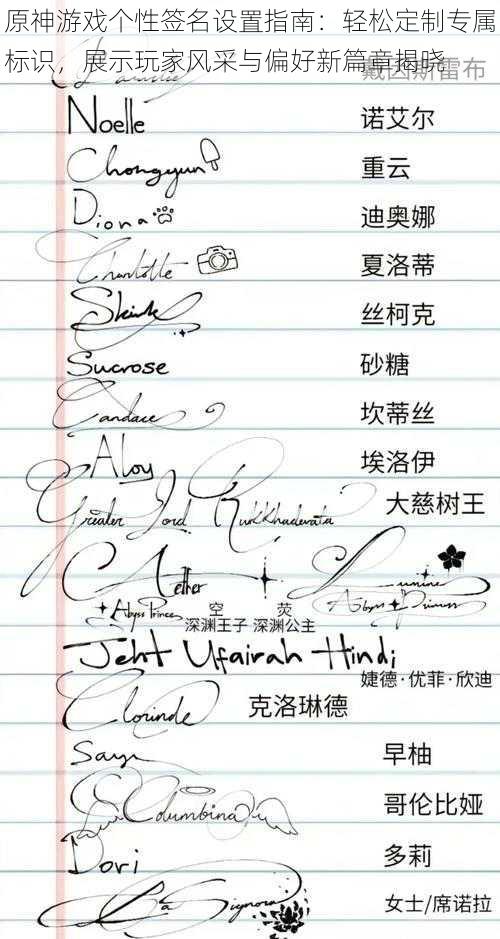 原神游戏个性签名设置指南：轻松定制专属
标识，展示玩家风采与偏好新篇章揭晓
戴因斯雷布
Noelle 诺艾尔
Chongyun 重云
Diona 迪奥娜
Charlotte 夏洛蒂
Skirk 丝柯克
Sucrose 砂糖
Candace 坎蒂丝
Aloy 埃洛伊
Greater Lord Rukkhadevata 大慈树王
Aether Lumine
Abyss Prince 空 荧 Abyss Princess
深渊王子 深渊公主
Jeht Ufairah Hindi
婕德·优菲·欣迪
Clorinde 克洛琳德
Sayu 早柚
Columbina 哥伦比娅
Dori 多莉
La Signora 女士/席诺拉